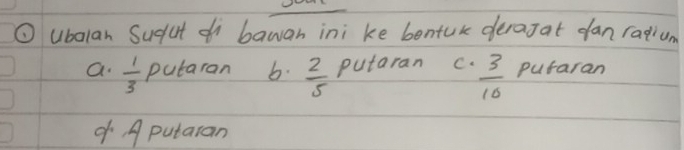 ① Ubalah Sudut di bawah ini ke bentuk derajat dan radium
a. 1/3 putaran b. 2/5 putaran c. 3/10 putaran
d. 4 putaran